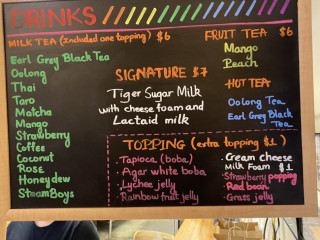 DRINKS
MILK TEA (Included one topping) $6
Earl Grey Black Tea
Oolong
Thai
Taro
Matcha
Mango
Strawberry
Coffee
Coconut
Rose
Honeydew
SteamBoys
SIGNATURE $7
Tiger Sugar Milk
with cheese foam and
Lactaid milk
FRUIT TEA $6
Mango
Peach
HOT TEA
Oolong Tea
Earl Grey Black
Tea
TOPPING (extra topping $1)
Tapioca (boba)
Agar white boba
Lychee jelly
Rainbow fruit jelly
Cream cheese
Milk Foam $1
Strawberry popping
Red bean
Grass jelly